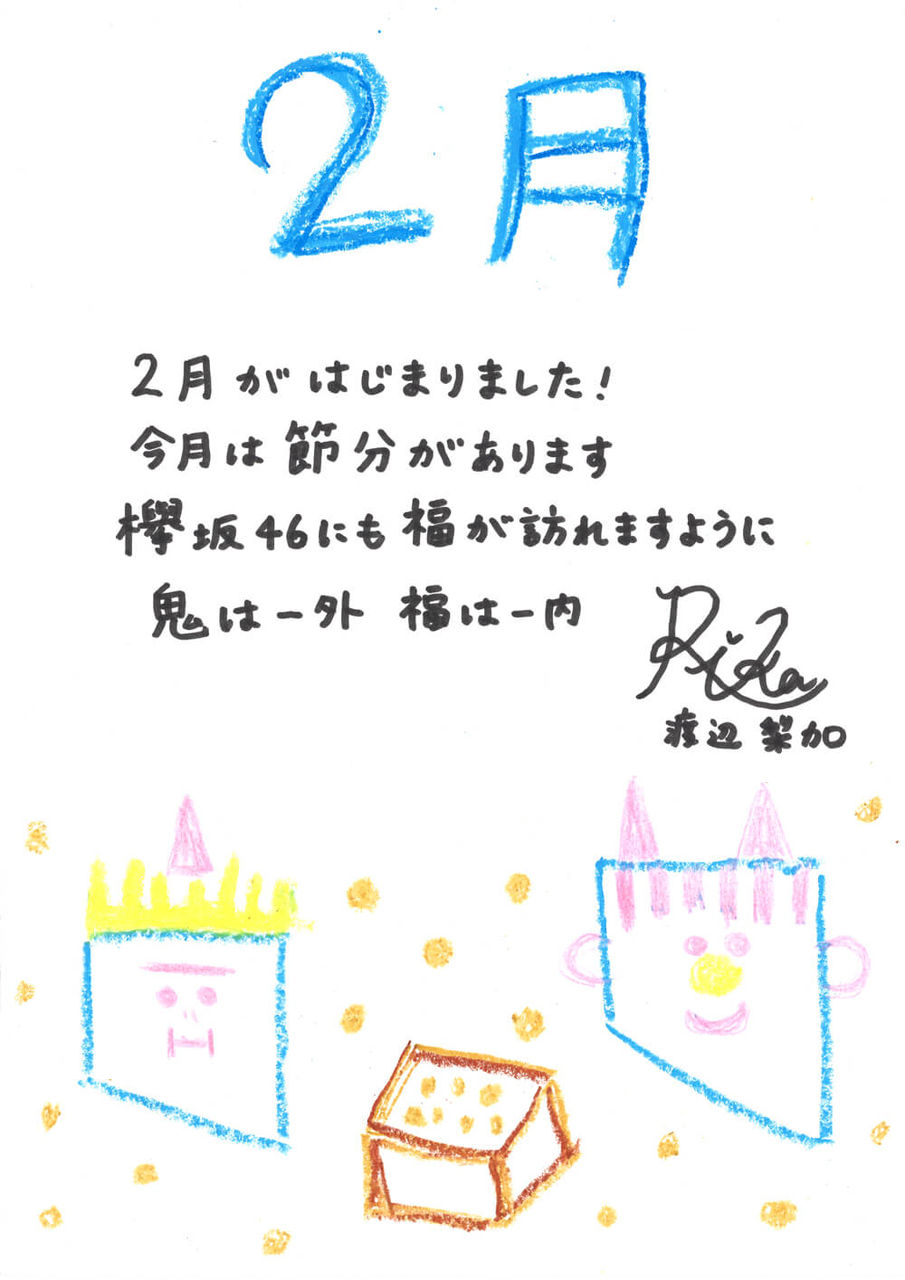 2月
2月がはじまりました!
今月は節分があります
欅坂46にも福が訪れますように
鬼はー外 福はー内
Rika
渡辺 梨加